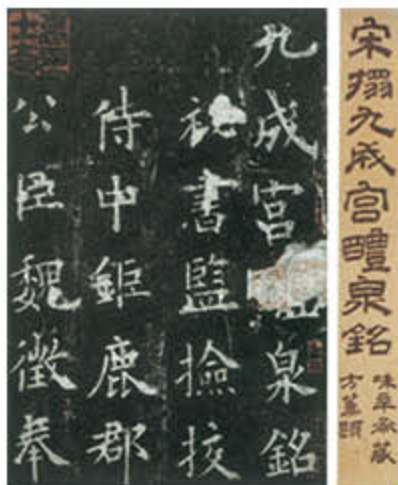 宋搨九成宮醴泉銘
味草廬藏
方藎題
九成宮泉銘
祕書監撿挍
侍中鉅鹿郡
公臣魏徵奉